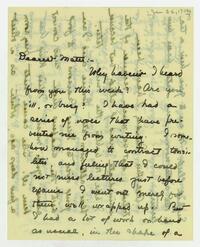 Dearest Mater:-
Why haven't I heard
from you this week? Are you
ill, or busy? I have had a
series of woes that have pre-
vented me from writing. I some-
how managed to contract tonsi-
litis and feeling that I could
not miss lectures just before
exams. I went out merely
well wrapped up. But
I had a lot of work on hand
as usual, in the shape of a